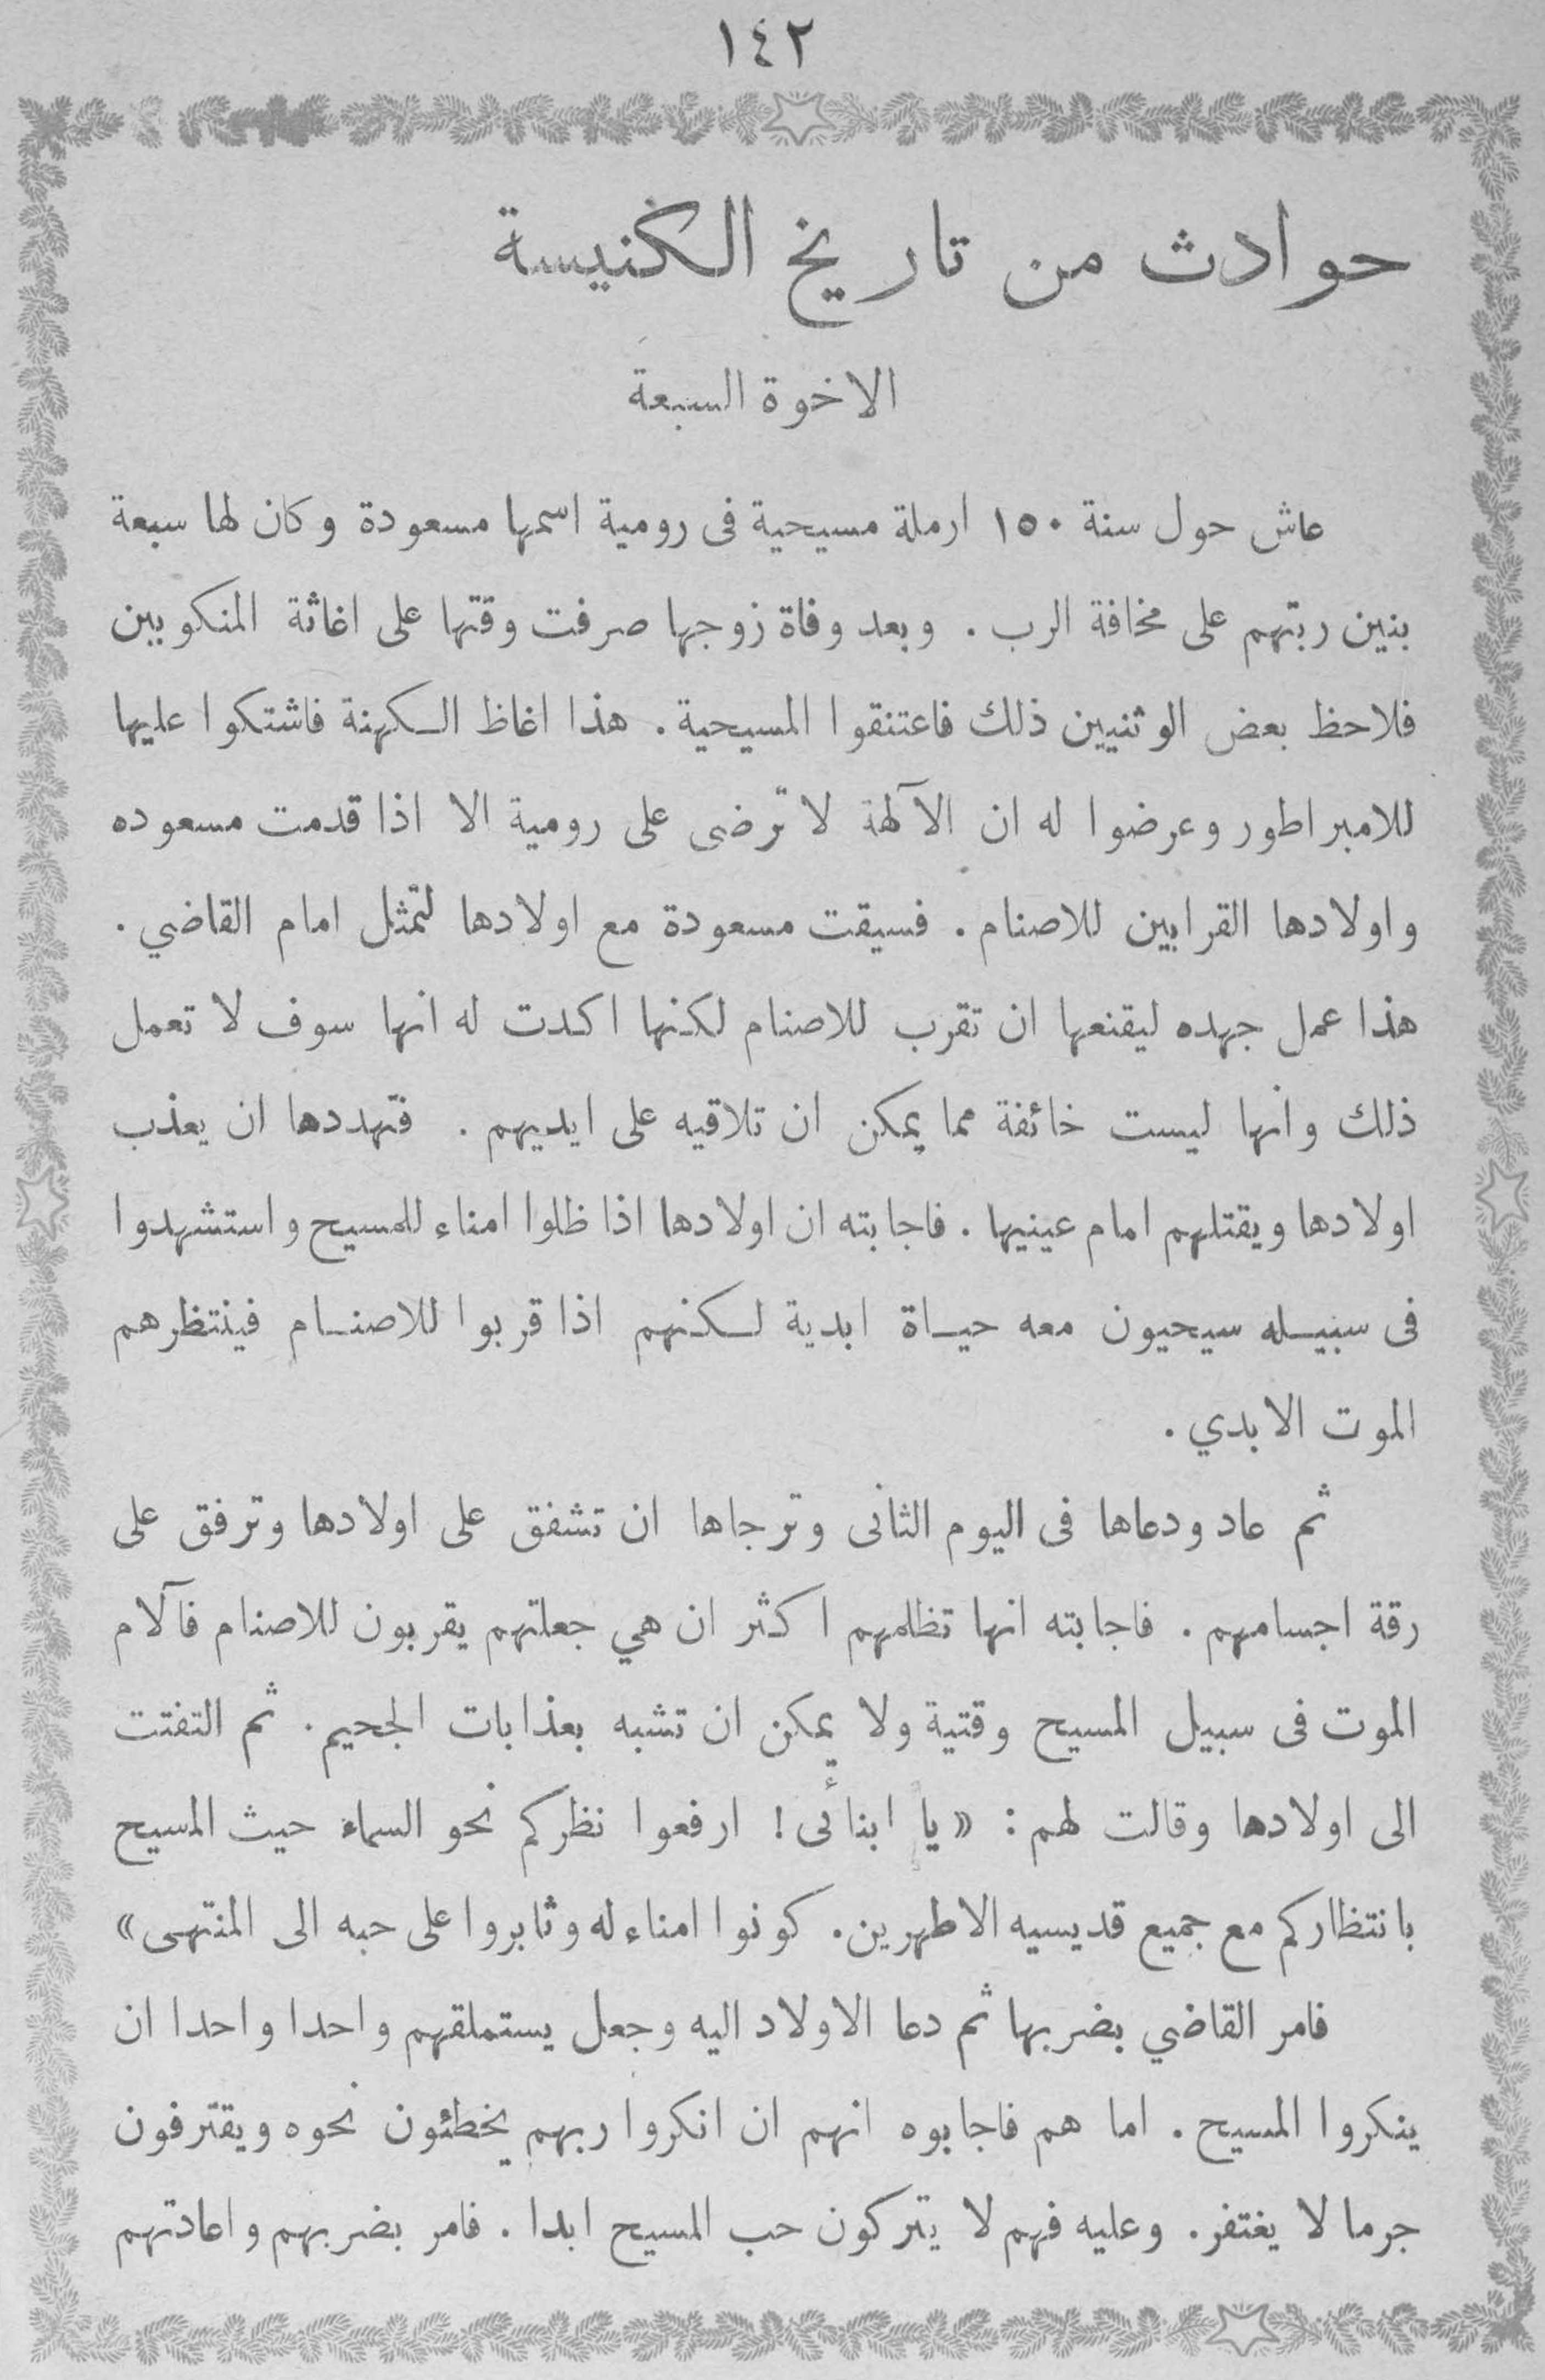 ١٤٢
حوادث من تاريخ الكنيسة
الاخوة السبعة
عاش حول سنة ١٥٠ ارملة مسيحية فى رومية اسمها مسعودة وكان لها سبعة
بنين ربتهم على مخافة الرب. وبعد وفاة زوجها صرفت وقتها على اغاثة المنكوبين
فلاحظ بعض الوثنيين ذلك فاعتنقوا المسيحية. هذا اغاظ الكهنة فاشتكوا عليها
للامبراطور وعرضوا له ان الآلهة لا ترضى على رومية الا اذا قدمت مسعوده
واولادها القرابين للاصنام. فسيقت مسعودة مع اولادها لتمثل امام القاضي.
هذا عمل جهده ليقنعها ان تقرب للاصنام لكنها اكدت له انها سوف لا تعمل
ذلك وانها ليست خائفة مما يمكن ان تلاقيه على ايديهم. فتهددها ان يعذب
اولادها ويقتلهم امام عينيها. فاجابته ان اولادها اذا ظلوا امناء للمسيح واستشهدوا
فى سبيله سيحيون معه حياة ابدية لكنهم اذا قربوا للاصنام فينتظرهم
الموت الابدي.
ثم عاد ودعاها فى اليوم الثانى وترجاها ان تشفق على اولادها وترفق على
رقة اجسامهم. فاجابته انها تظلمهم اكثر ان هي جعلتهم يقربون للاصنام فآلام
الموت فى سبيل المسيح وقتية ولا يمكن ان تشبه بعذابات الجحيم. ثم التفتت
الى اولادها وقالت لهم: «يا ابنائى! ارفعوا نظركم نحو السماء حيث المسيح
بانتظاركم مع جميع قديسيه الاطهرين. كونوا امناء له وثابروا على حبه الى المنتهى»
فامر القاضي بضربها ثم دعا الاولاد اليه وجعل يستملقهم واحدا واحدا ان
ينكروا المسيح. اما هم فاجابوه انهم ان انكروا ربهم يخطئون نحوه ويقترفون
جرما لا يغتفر. وعليه فهم لا يتركون حب المسيح ابدا. فامر بضربهم واعادتهم